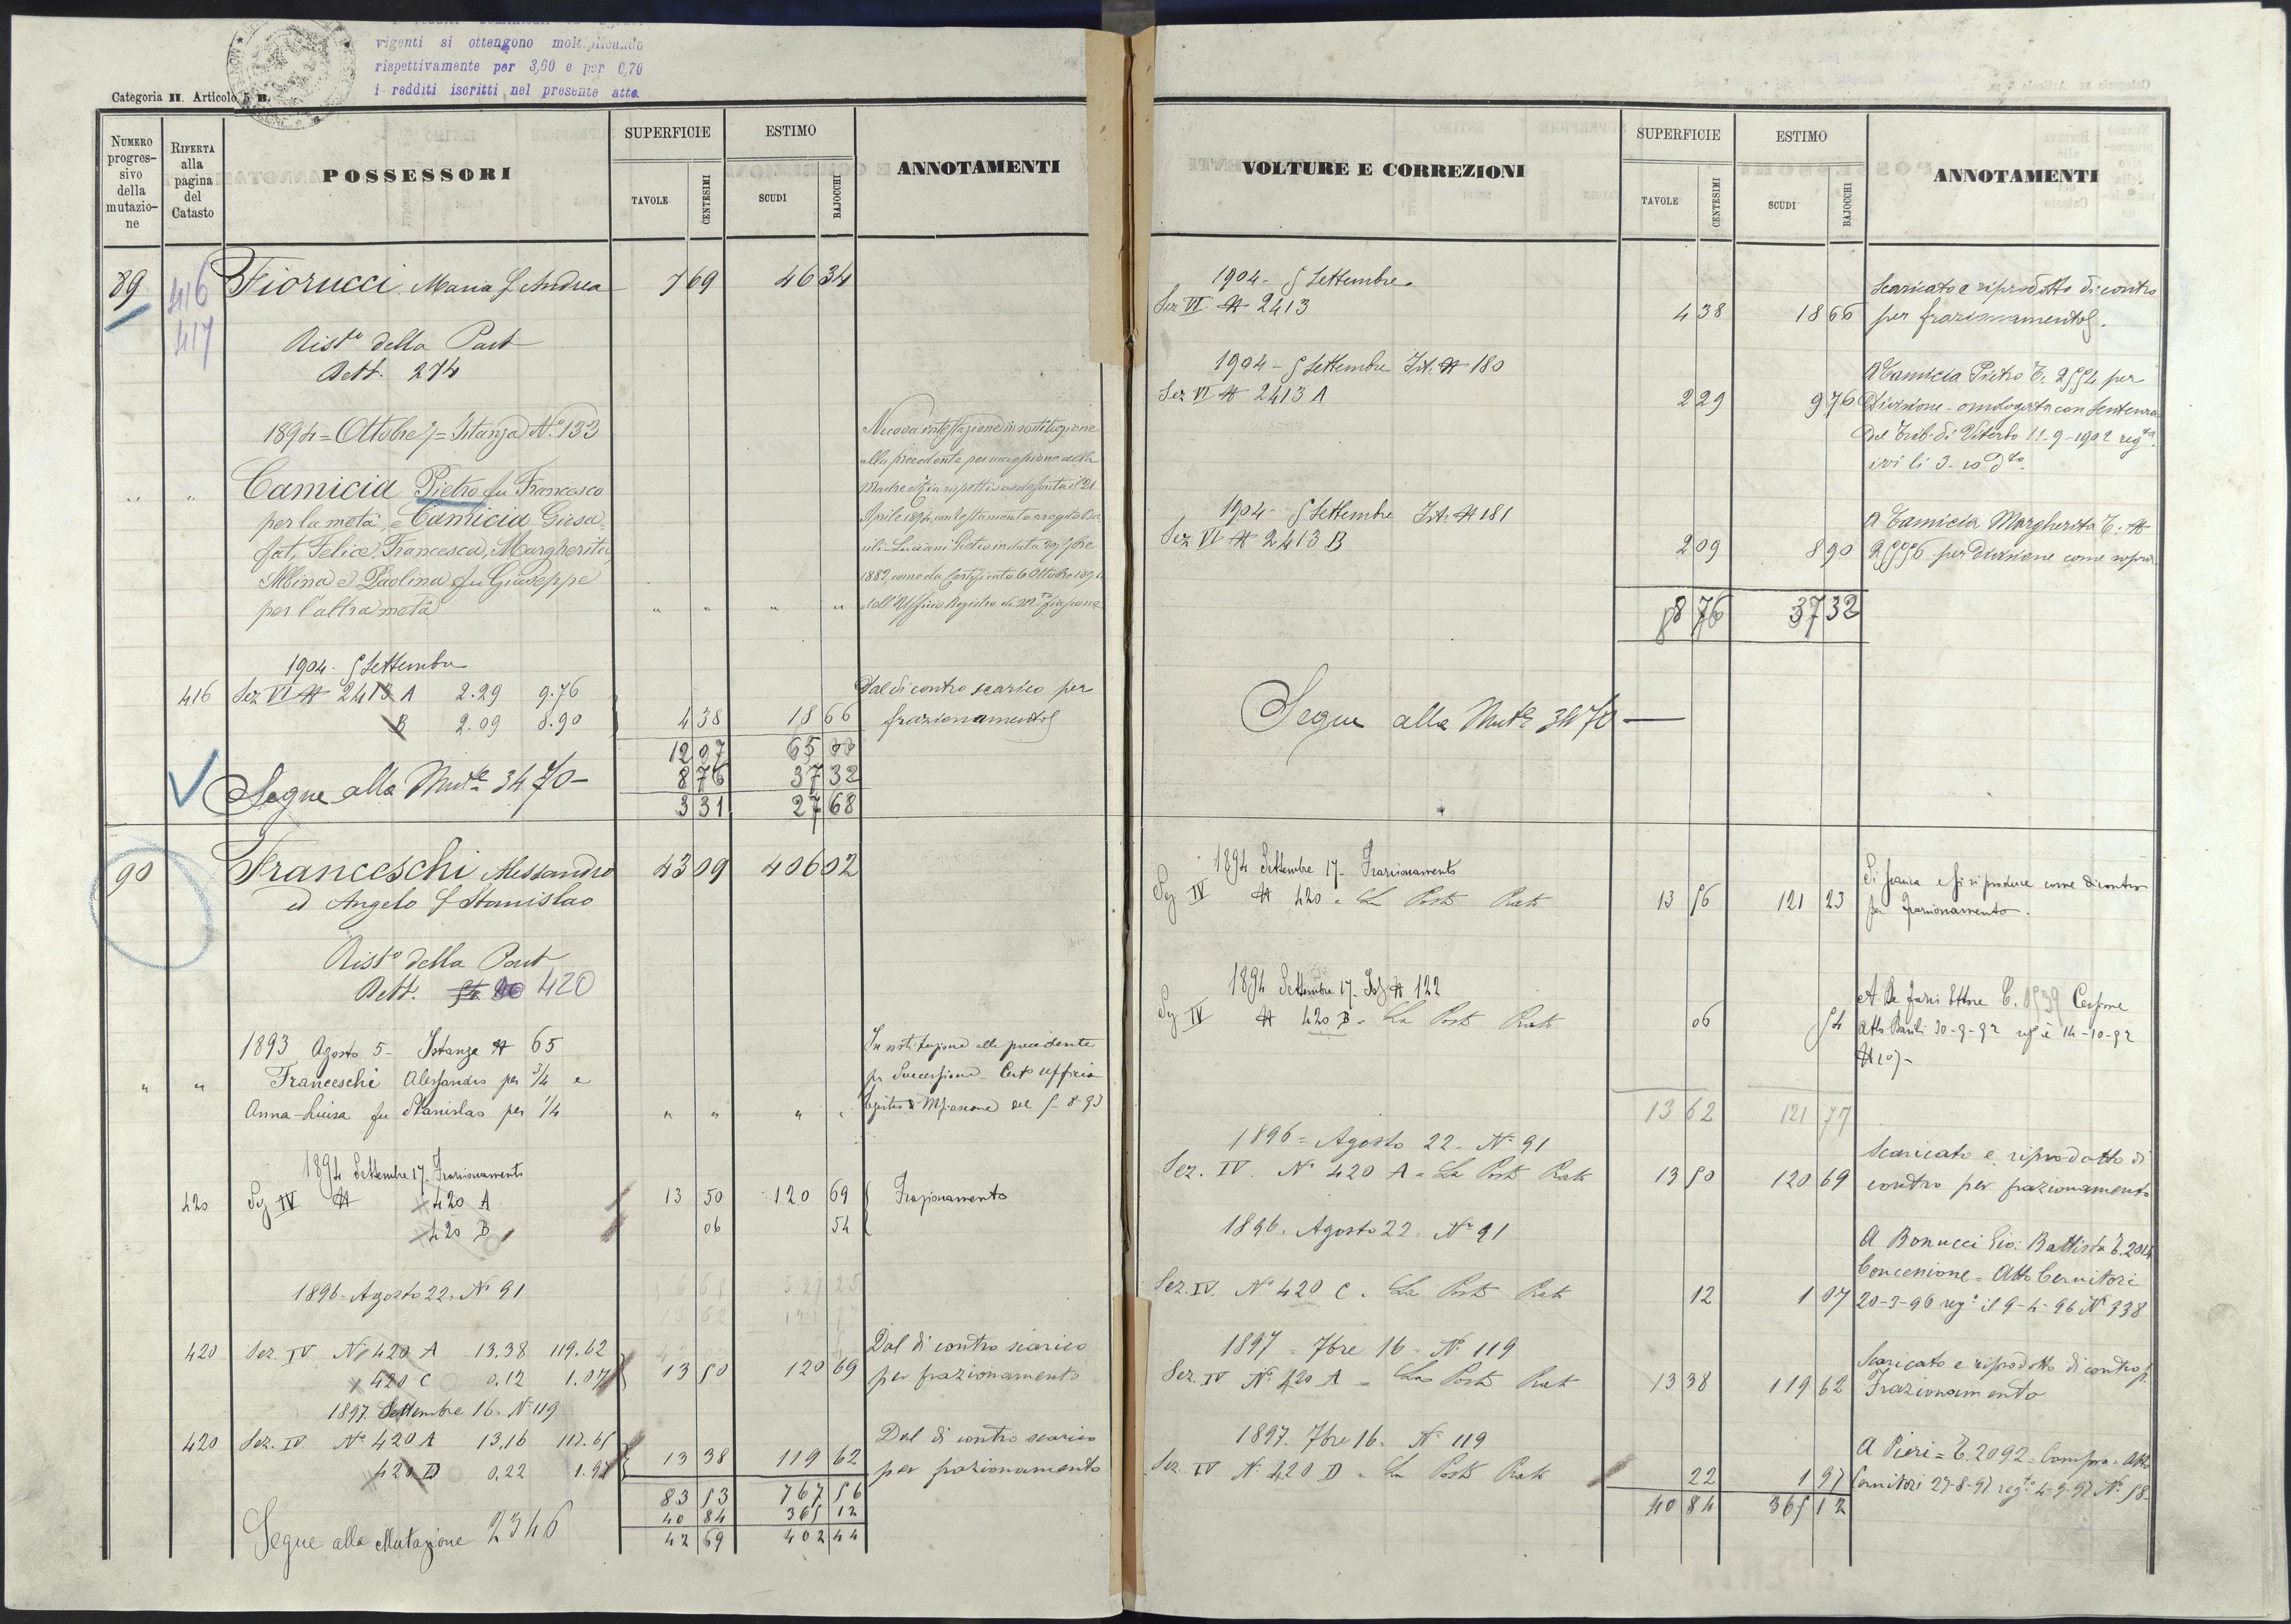 vigenti si ottengono moltiplicando
rispettivamente per 3,60 e per 0,70
i redditi iscritti nel presente atto
Categoria II. Articolo 5 B.
NUMERO progressivo della mutazione
RIFERTA alla pagina del Catasto
POSSESSORI
SUPERFICIE
TAVOLE
CENTESIMI
ESTIMO
SCUDI
BAJOCCHI
ANNOTAMENTI
89 416 Fiorucci Maria f Andrea 7 69 46 34
417
Rist.o della Part
Rett. 274
1894 = Ottobre 7 = Istanza N.o 133
Camicia Pietro fu Francesco
per la metà, e Camicia Giosa=
fat, Felice, Francesca, Margherita,
Albina e Paolina fu Giuseppe
per l'altra metà " " " "
Nuova intestazione in sostituzione
alla precedente per successione della
Aprile 1894, con testamento
dell'Uffizio Registro di M.fiascone
1904 - 5 Settembre
416 Sez VI N 2413 A 2.29 9.76
B 2.09 8.90 4 38 18 66
Dal di contro scarico per
frazionamento
12 07 65 00
8 76 37 32
Segue alla Mut.e 3470 -
3 31 27 68
90 Franceschi Alessandro 43 09 406 02
ed Angelo f Stanislao
Rist.o della Part
Rett. 420
1893 Agosto 5 - Istanza N 65
" " Franceschi Alessandro per 3/4 e
Anna-Luisa fu Stanislao per 1/4 " " " "
In sostituzione alla precedente
per Successione - Cert.o Ufficio
Registro di Mfiascone del 5-8-93
1894 Settembre 17. Frazionamento
420 Sez IV N 420 A 13 50 120 69 Frazionamento
420 B 06 54
1896 = Agosto 22 = No 91
420 Sez. IV No 420 A 13.38 119.62
420 C 0.12 1.07 13 50 120 69
Dal di contro scarico
per frazionamento
1897. Settembre 16. No 119
420 Sez. IV No 420 A 13,16 117.65
420 D 0,22 1.97 13 38 119 62
Dal di contro scarico
per frazionamento
83 53 767 56
40 84 365 12
42 69 402 44
Segue alla Mutazione 2346
VOLTURE E CORREZIONI
SUPERFICIE
TAVOLE
CENTESIMI
ESTIMO
SCUDI
BAJOCCHI
ANNOTAMENTI
1904 - 5 Settembre
Sez VI N 2413 4 38 18 66
Scaricato e riprodotto di contro
per frazionamento
1904 - 5 Settembre Ist. N 180
Sez VI N 2413 A 2 29 9 76
A Camicia Pietro C. 2554 per
Divisione - omologata con Sentenza
del Trib. di Viterbo 11-9-1902 reg.ta
ivi li 3-10 d.to
1904 - 5 Settembre Ist. N 181
Sez VI N 2413 B 2 09 8 90
A Camicia Margherita C. N
2556 per Divisione come sopra
8 76 37 32
Segue alla Mut.e 3470
1894 Settembre 17 - Frazionamento
Sez IV N 420 = La Posta Prato 13 56 121 23
Si scarica e si riproduce come di contro
per Frazionamento.
1894 Settembre 17. N 122
Sez IV N 420 B = La Posta Prato 06 54
1539 Cessione
Atto 30-9-92 14-10-92
N 107 -
13 62 121 77
1896 = Agosto 22 - No 91
Sez. IV. No 420 A = La Posta Prato 13 50 120 69
Scaricato e riprodotto di
contro per frazionamento
1896. Agosto 22. No 91
Sez. IV. No 420 C. La Posta Prato 12 1 07
A Bonucci Gio: Battista C. 2014
Concessione = Atto Cernitori
20-3-96 reg.o il 9-4-96 No 338
1897 = 7bre 16 = No 119
Sez. IV No 420 A = La Posta Prato 13 38 119 62
Scaricato e riprodotto di contro p.
Frazionamento
1897. 7bre 16. No 119
Sez. IV N. 420 D = La Posta Prato 22 1 97
A Pieri = C. 2092 = Compra = Atto
Cernitori 27-8-97 reg.to 4-9-97 No 58
40 84 365 12